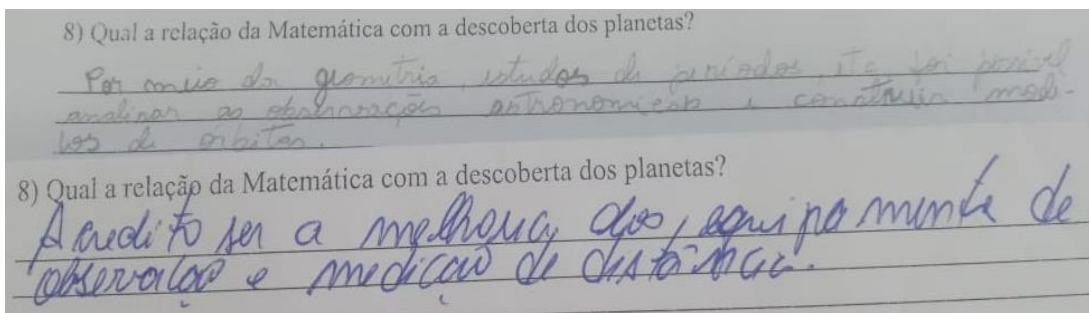 8) Qual a relação da Matemática com a descoberta dos planetas?
Por meio da geometria, estudos de períodos, etc foi possível
analisar as observações astronomicas e construir mode-
los de orbitas.
8) Qual a relação da Matemática com a descoberta dos planetas?
Acredito ser a melhora dos equipamente de
observação e medição de distância.